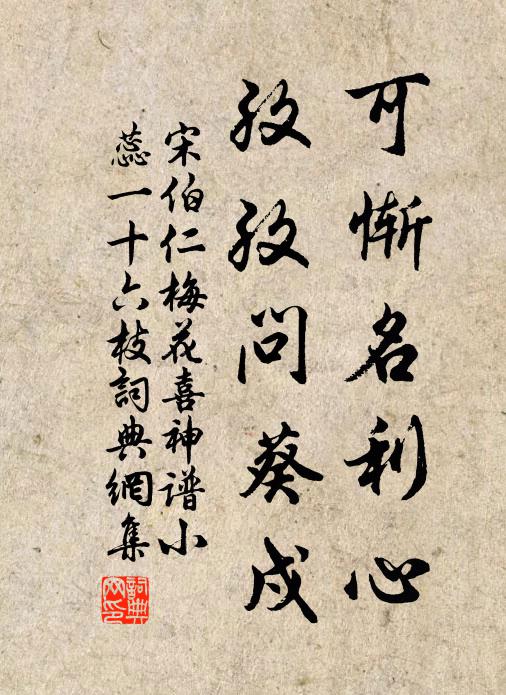 可惭名利心
孜孜问葵戍
宋伯仁梅花喜神谱小
蕊一十六枝詞典網集
詞典